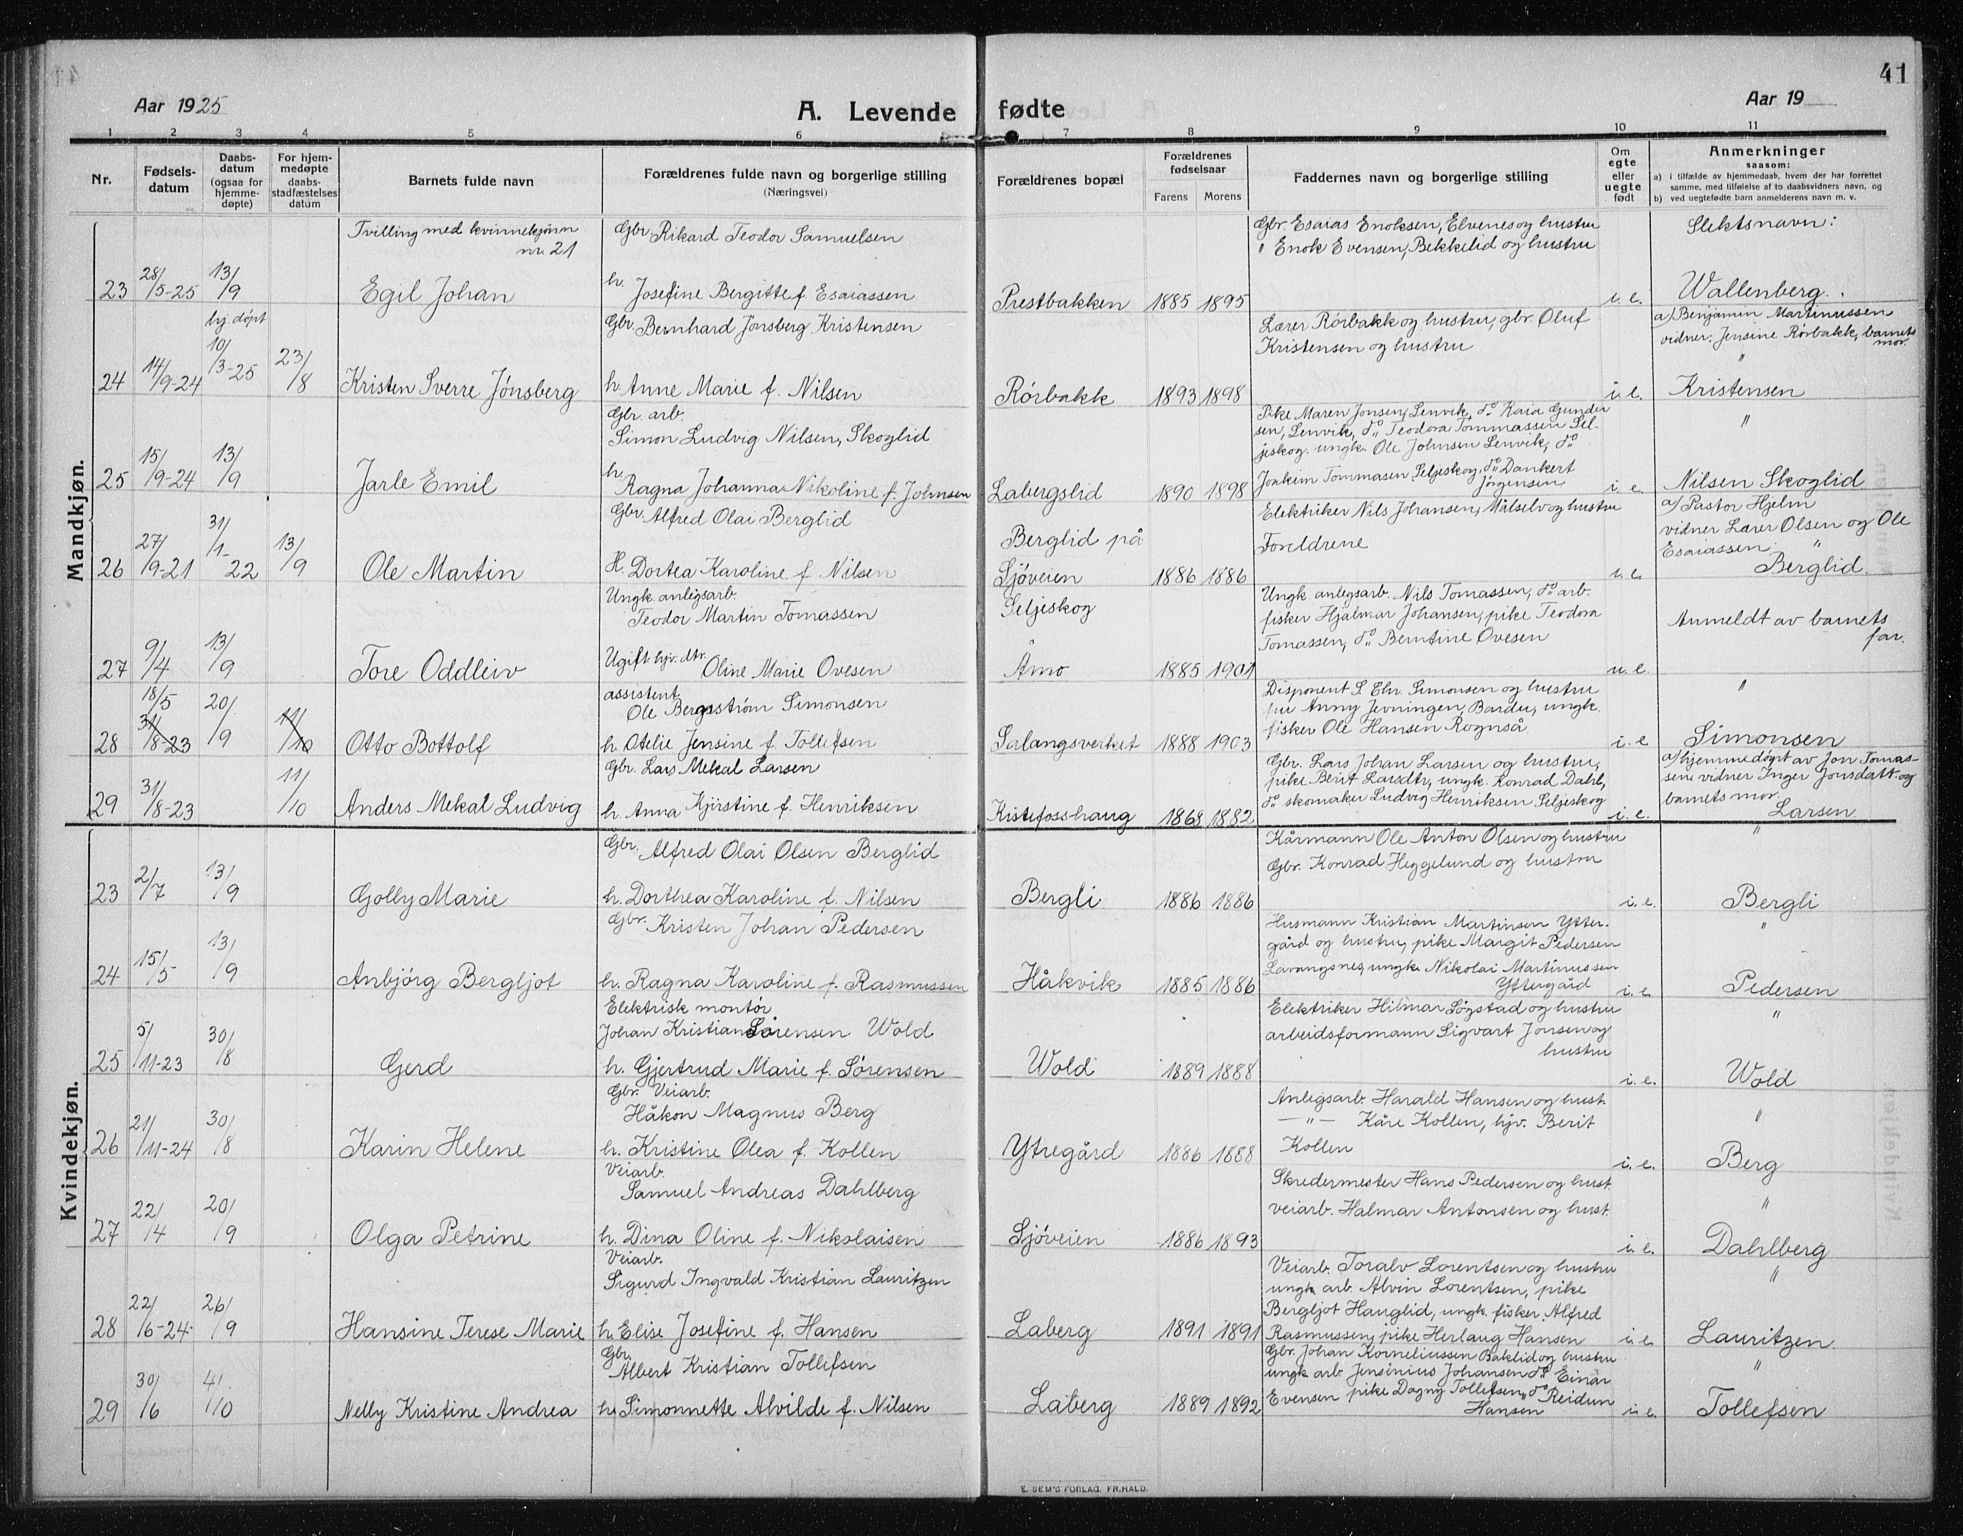 41
Aar 1925
A. Levende fødte
Aar 19
1 2 3 4 5 6 7 8 9 10 11
Nr.
Fødsels-
datum
Daabs-
datum
(ogsaa for
hjemme-
døpte)
For hjem-
medøpte
daabs-
stadfæstelses
datum
Barnets fulde navn
Forældrenes fulde navn og borgerlige stilling
(Næringsvei)
Forældrenes bopæl
Forældrenes
fødselsaar
Farens Morens
Faddernes navn og borgerlige stilling
Om
egte
eller
uegte
født
Anmerkninger
saasom:
a) i tilfælde av hjemmedaab, hvem der har forrettet
samme, med tilføielse af to daabsvidners navn, og
b) ved uegtefødte barn anmelderens navn m. v.
Mandkjøn.
Tvilling med kvinnekjønn
nr. 21
Gbr. Rikard Teodor Samuelsen
Gbr. Esaias Enoksen, Elvenes og hustru
" Enok Evensen, Bekkelid og hustru
Slektsnavn:
23 28/5-25 13/9 Egil Johan h. Josefine Bergitte f. Esaiassen Prestbakken 1885 1895 i. e. Wallenberg.
hj. døpt
Gbr. Bernhard Jönsberg Kristensen
Lærer Rörbakk og hustru, gbr. Oluf
Kristensen og hustru
a) Benjamin Martinussen
vidner: Jensine Rørbakk, barnets
mor.
"
24 14/9-24 10/3-25 23/8 Kristen Sverre Jönsberg h. Anne Marie f. Nilsen Rörbakk 1893 1898 i. e. Kristensen
Gbr. arb.
Simon Ludvig Nilsen, Skoglid
Pike Maren Jonsen, Lenvik, do Kaia Gunder
sen, Lenvik, do Teodora Tommassen Sel-
jeskog. ungk. Ole Johnsen Lenvik, do
Joakim Tommasen Seljeskog, do Dankert
Jörgensen
"
25 15/9-24 13/9 Jarle Emil h. Ragna Johanna Nikoline f. Johnsen Labergslid 1890 1898 i. e. Nilsen Skoglid
Gbr. Alfred Olai Berglid
Berglid på
Sjöveien
Elektriker Nils Johansen, Målselv og hustru
Foreldrene
a) Pastor Hjelm
vidner Lærer Olsen og Ole
Esaiassen. "
26 27/9-21 31/1-22 13/9 Ole Martin H. Dortea Karoline f. Nilsen 1886 1886 i. e. Berglid.
Ungk. anlegsarb.
Teodor Martin Tomassen
Seljeskog
Ungk anlegsarb. Nils Tomassen, do arb.
fisker Hjalmar Johansen, pike Teodora
Tomassen, do Berntine Ovesen
Anmeldt av barnets
far.
27 9/4 13/9 Tore Oddleiv Ugift hjv. dtr. Oline Marie Ovesen Åmo 1885 1901 u. e.
assistent
Ole Bergsström Simonsen
Disponent S. Chr. Simonsen og hustru
fru Anny Jevningen, Bardu, ungk.
fisker Ole Hansen Rognså
"
28 18/5 31/8-23 20/9 11/10 Otto Bottolf h. Otelie Jensine f. Tollefsen Salangsverket 1888 1903 i. e Simonsen
Gbr. Lars Mekal Larsen
Gbr. Lars Johan Larsen og hustru,
pike Berit Larsdtr, ungk. Konrad Dahl,
do skomaker Ludvig Henriksen Seljeskog
a) hjemmedøpt av Jon Tomas-
sen vidner Inger Jonsdatt. og
barnets mor.
29 31/8-23 11/10 Anders Mekal Ludvig h. Anna Kjirstine f. Henriksen Kistefosshaug 1868 1882 i. e. Larsen
Kvindekjøn.
Gbr. Alfred Olai Olsen Berglid
Kårmann Ole Anton Olsen og hustru
Gbr. Konrad Heggelund og hustru
"
23 2/7 13/9 Golly Marie h. Dorthea Karoline f. Nilsen Bergli 1886 1886 i. e. Bergli
Gbr. Kristen Johan Pedersen
Husmann Kristian Martinsen Ytter-
gård og hustru, pike Margit Pedersen
Lavangsnes, ungk. Nikolai Martinussen
Yttergård
"
24 15/5 13/9 Anbjörg Bergljot h. Ragna Karoline f. Rasmussen Håkvik 1885 1886 i. e. Pedersen
Elektrisk montör
Johan Kristian Sörensen Wold
Elektriker Hilmar Sögstad og hustru
arbeidsformann Sigvart Jonsen og
hustru
"
25 5/11-23 30/8 Gerd h. Gjertrud Marie f. Sörensen Wold 1889 1888 i. e. Wold
Gbr. Veiarb.
Håkon Magnus Berg
Anlegsarb. Harald Hansen og hust.
—"— Kåre Kollen, hjv. Berit
Kollen
"
26 21/11-24 30/8 Karin Helene h. Kristine Olea f. Kollen Ytregård 1886 1888 i. e. Berg
Veiarb.
Samuel Andreas Dahlberg
Skredermester Hans Pedersen og hust.
veiarb. Halmar Antonsen og hust.
"
27 22/4 20/9 Olga Petrine h. Dina Oline f. Nikolaisen Sjöveien 1886 1893 i. e. Dahlberg
Veiarb.
Sigurd Ingvald Kristian Lauritzen
Veiarb. Toralv Lorentsen og hustru
ungk. arb. Alvin Lorentsen, pike
Bergljot Hauglid, ungk. fisker Alfred
Rasmussen, pike Herlaug Hansen
"
28 22/6-24 26/9 Hansine Terese Marie h. Elise Josefine f. Hansen Laberg 1891 1891 i. e. Lauritzen
Gbr.
Albert Kristian Tollefsen
Gbr. Johan Korneliussen Baklid og hustru
ungk arb. Jensenius Johansen do Einar
Evensen pike Dagny Tollefsen, do Reidun
Hansen
"
29 30/6 4/10 Nelly Kristine Andrea h. Simonnette Alvilde f. Nilsen Laberg 1889 1892 i. e. Tollefsen
E. SEM'S FORLAG, FR.HALD.